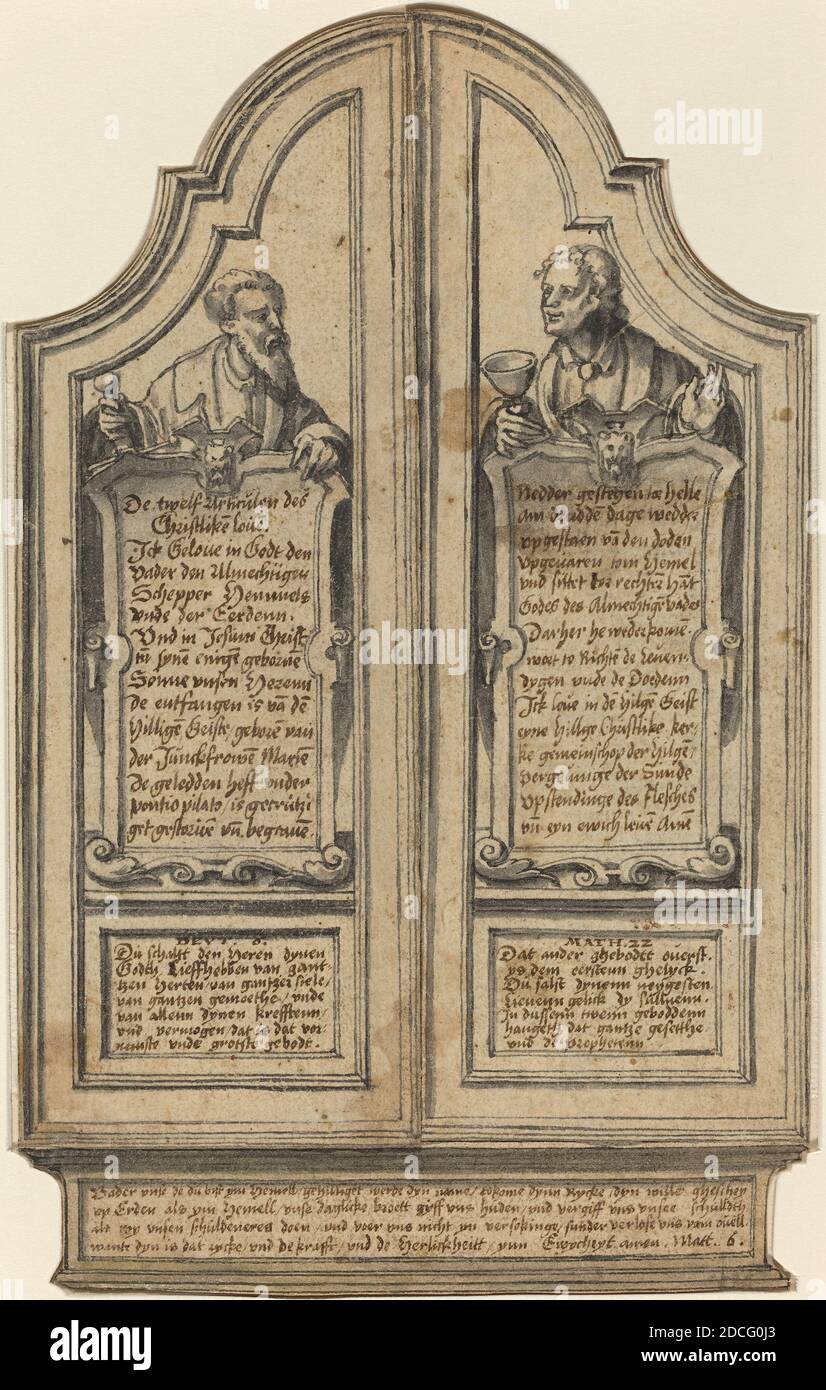 De twelf Articulen des
Christlike loue.
Ick Geloue in Godt den
Vader den Almechtigen
Schepper Hemmels
vnde der Eerdenn.
Vnd in Jesum Christ
synen enigē gebornē
Sonne vnsen Herenn
de entfangen is vā dē
Hilligē Geiste, geborē van
der Junckfrowen Mariē
De geledden heft onder
pontio pilato, is gecrutzi
get gestoruen vñ begrauē.
Nedder gestegen toe Helle
Am dridde dage wedder
vpgestaen vā den doden
vpgeuaren tom Hemel
vnd sittet tor rechter hāt
Godes des Almechtigē vades
Darher he weder komē
wort to Richtē de leuen-
dygen vnde de Doedenn
Ick loue in dē hilgē Geist
eyne hillge Christlike ker-
ke gemeinschop der hilgē,
vergeuinge der Sunde
vpstendinge des flesches
vñ eyn ewich leuē Amē
DEVT. 6.
Du schalst den Heren dynen
Godtt Lieffhebben van gant-
tzen Herten, van gantzer siele,
van gantzen gemoethe, vnde
van allenn dynen krefftenn,
vnd vermogen, dat is dat vor-
nemste vnde grotste gebodt.
MATH. 22
Dat ander ghebodtt ouerst.
ys dem eerstenn ghelyck.
Du salst dynenn negesten
Lieuenn gelick dy sulluenn.
In dussenn twenn geboddenn
hangeth dat gantze gesetthe
vnd de Prophetenn
Vader vnse de du bist ym Hemell, gehilliget werde dyn name, tokome dynn Rycke, dyn wille gheschey
vp Erden als ym Hemell, vnse daglicke broett gyff vns huden, vnd vergiff vns vnsee schuldth
als wy vnsen schuldeneres doen, vnd voer vns nicht yn versokinge, sunder verlose vns vam ouell
wante dyn is dat rycke, vnd de krafft, vnd de Herlickheitt, ynn Ewycheyt amen. Matt. 6.
alamy
alamy
Image ID: 2DCG0J3
www.alamy.com